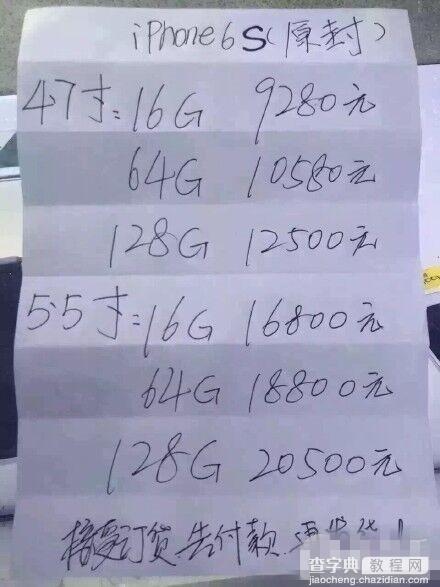 iPhone 6S(原封)
4.7寸:16G 9280元
64G 10580元
128G 12500元
5.5寸:16G 16800元
64G 18800元
128G 20500元
接受订货 先付款 再发货!
查字典 教程网
jiaocheng.chazidian.com